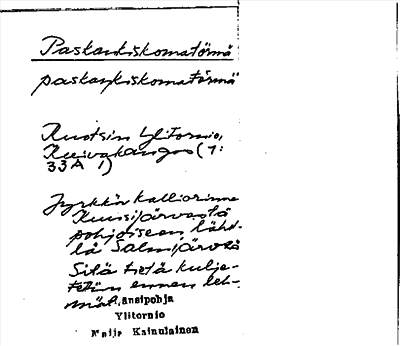 Paskankiskomatörmä
paskankiskomatörmä
Ruotsin Ylitornio,
Kuivakangas (7:
33A 1)
Jyrkkä kalliorinne
Kuusijärvestä
pohjoiseen, lähel-
lä Salmijärveä
Sitä tietä kulje-
tettiin ennen leh-
mät.
Länsipohja
Ylitornio
Maija Kainulainen